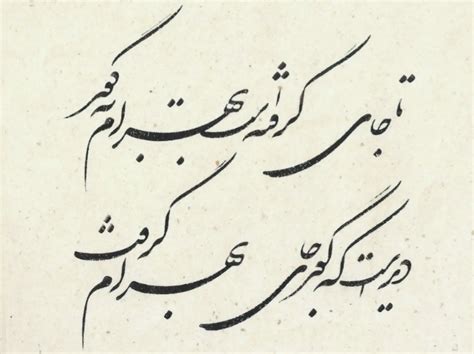 تا جای گرفته است بهرام به گور
دیریست که گور جای بهرام گرفت